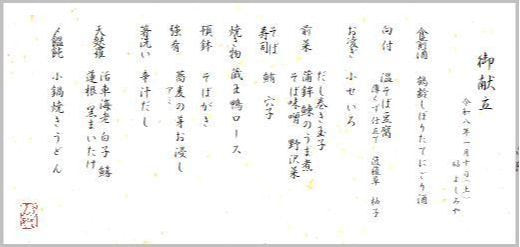 御献立
令和八年一月十日(土)
於 よしみや
食前酒 鶴齢しぼりたてにごり酒
向付 温そば豆腐
薄くず仕立て 菠薐草 柚子
お凌ぎ 小せいろ
前菜 だし巻き玉子
蒲鉾 鰊のうま煮
そば味噌 野沢菜
そば寿司 鯖 穴子
焼き物 蔵王鴨ロース
預鉢 そばがき
強肴 蕎麦の芽お浸し
箸洗い 辛汁だし
天麩羅 活車海老 白子 鱚
蓮根 黒まいたけ
〆饂飩 小鍋焼きうどん